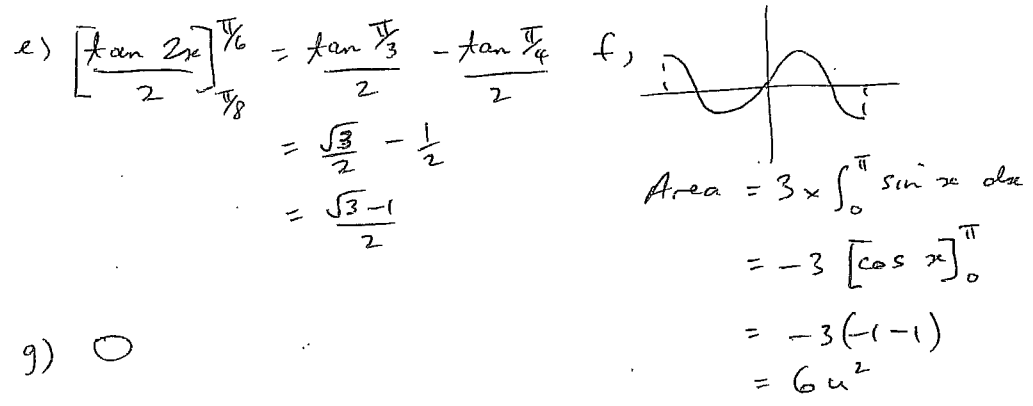 e) [tan 2x / 2]_{π/8}^{π/6} = tan π/3 / 2 - tan π/4 / 2
= √3/2 - 1/2
= (√3-1)/2
f,
Area = 3 × ∫_0^π sin x dx
= -3 [cos x]_0^π
= -3(-1-1)
= 6u²
g) 0